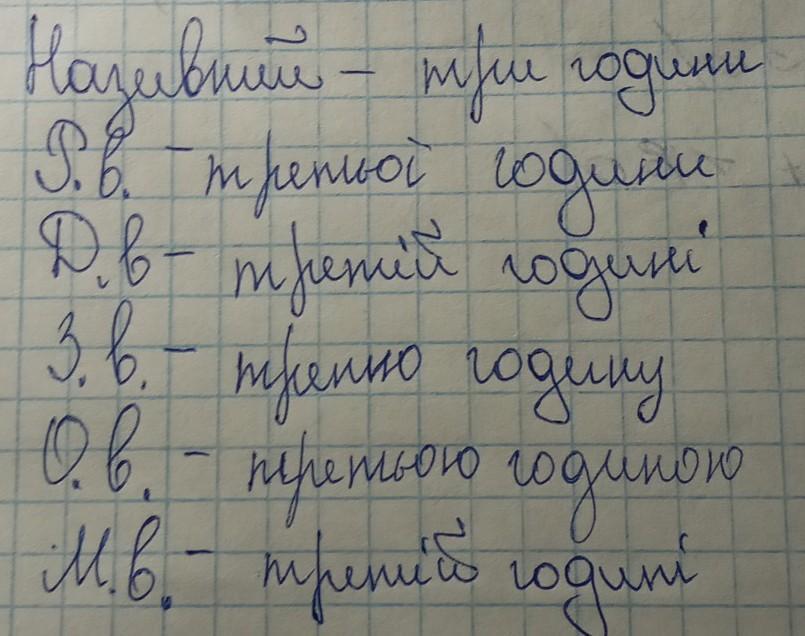 Називний – три години
Р.в. – третьої години
Д.в – третій годині
З.в. – третю годину
О.в. – третьою годиною
М.в. – третій годині